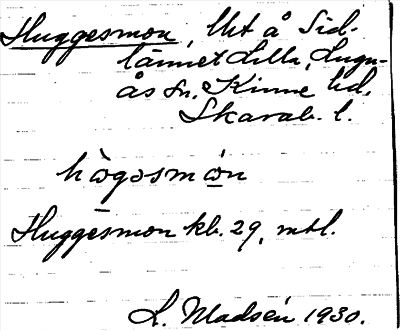 Huggesmon, lht å Sid-
lännet Lilla, Lugn-
ås sn. Kinne hd.
Skarab. l.
hògosmòn
Huggesmon kb. 29, mtl.
L. Madsén 1930.